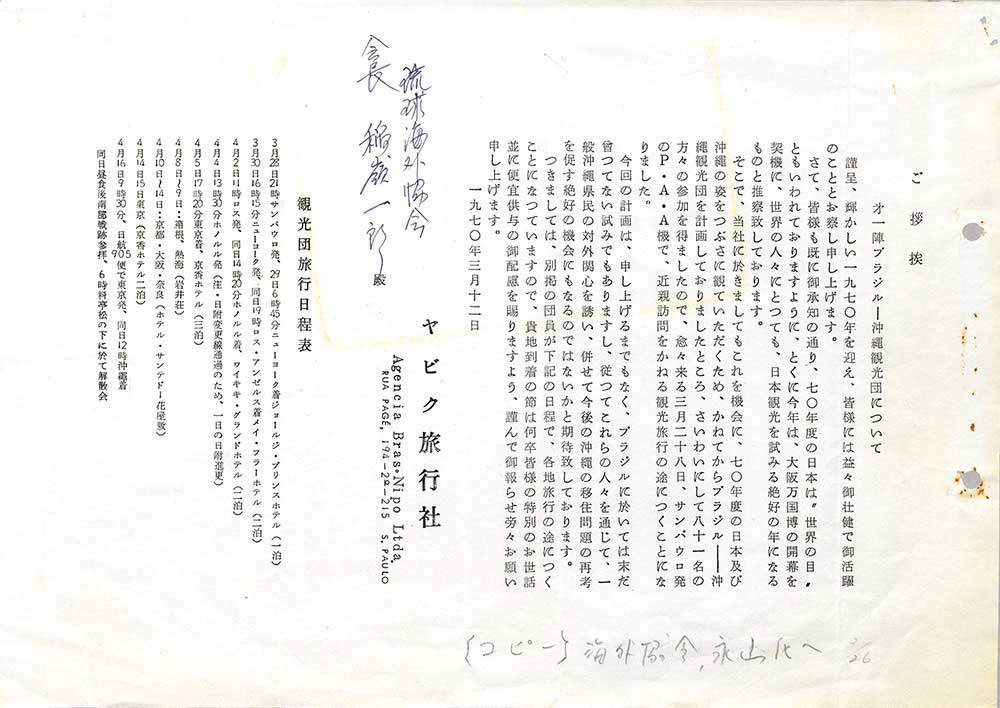 ご挨拶
才一陣ブラジル――沖縄観光団について
謹呈、輝かしい一九七〇年を迎え、皆様には益々御壮健で御活躍
のこととお察し申し上げます。
さて、皆様も既に御承知の通り、七〇年度の日本は〝世界の目〟
ともいわれておりますように、とくに今年は、大阪万国博の開幕を
契機に、世界の人々にとつても、日本観光を試みる絶好の年になる
ものと推察致しております。
そこで、当社に於きましてもこれを機会に、七〇年度の日本及び
沖縄の姿をつぶさに観ていただくため、かねてからブラジル――沖
縄観光団を計画しておりましたところ、さいわいにして八十一名の
方々の参加を得ましたので、愈々来る三月二十八日、サンパウロ発
のP・A・A機で、近親訪問をかねる観光旅行の途につくことにな
りました。
今回の計画は、申し上げるまでもなく、ブラジルに於いては末だ
曾つてない試みでもありますし、従つてこれらの人々を通じて、一
般沖縄県民の対外関心を誘い、併せて今後の沖縄の移住問題の再考
を促す絶好の機会にもなるのではないかと期待致しております。
つきましては、別掲の団員が下記の日程で、各地旅行の途につく
ことになつていますので、貴地到着の節は何卒皆様の特別のお世話
並に便宜供与の御配慮を賜りますよう、謹んで御報らせ旁々お願い
申し上げます。
一九七〇年三月十二日
ヤビク旅行社
Agencia Bras-Nipo Ltda.
RUA PAGÉ, 194-2º-215 S. PAULO
琉球海外協会
会長 稲嶺一郎 殿
観光団旅行日程表
3月28日21時サンパウロ発、29日6時45分ニューヨーク着ジョールジ・プリンスホテル(一泊)
3月30日16時15分ニューヨーク発、同日19時ロス・アンゼルス着メイ・フラーホテル(二泊)
4月2日11時ロス発、同日14時20分ホノルル着、ワイキキ・グランドホテル(二泊)
4月4日13時30分ホノルル発(注・日附変更線通過のため、一日の日附進更)
4月5日17時20分東京着、京香ホテル(三泊)
4月8日~9日:箱根、熱海(岩井荘)
4月10日~14日:京都・大阪・奈良(ホテル・サンテドー花屋敷)
4月14日15日東京(京香ホテル二泊)
4月16日9時30分、日航905便で東京発、同日12時沖縄着
同日昼食後南部戦跡参拝、6時料亭松の下に於て解散会
{コピー} 海外協会,永山氏へ 3/26